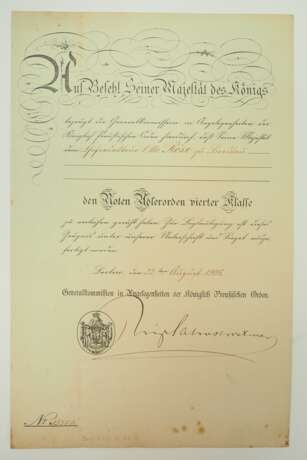 Auf Befehl Seiner Majestät des Königs
bezeugt die Generalkommission in Angelegenheiten der
Königlich Preußischen Orden hierdurch, daß Seine Majestät
dem
zu
den Roten Adlerorden vierter Klasse
zu verleihen geruht haben. Zur Beglaubigung ist dieses
Zeugnis unter unserer Unterschrift und Siegel ausge-
fertigt worden.
Berlin, den 22ten August 1906
Generalkommission in Angelegenheiten der Königlich Preußischen Orden.